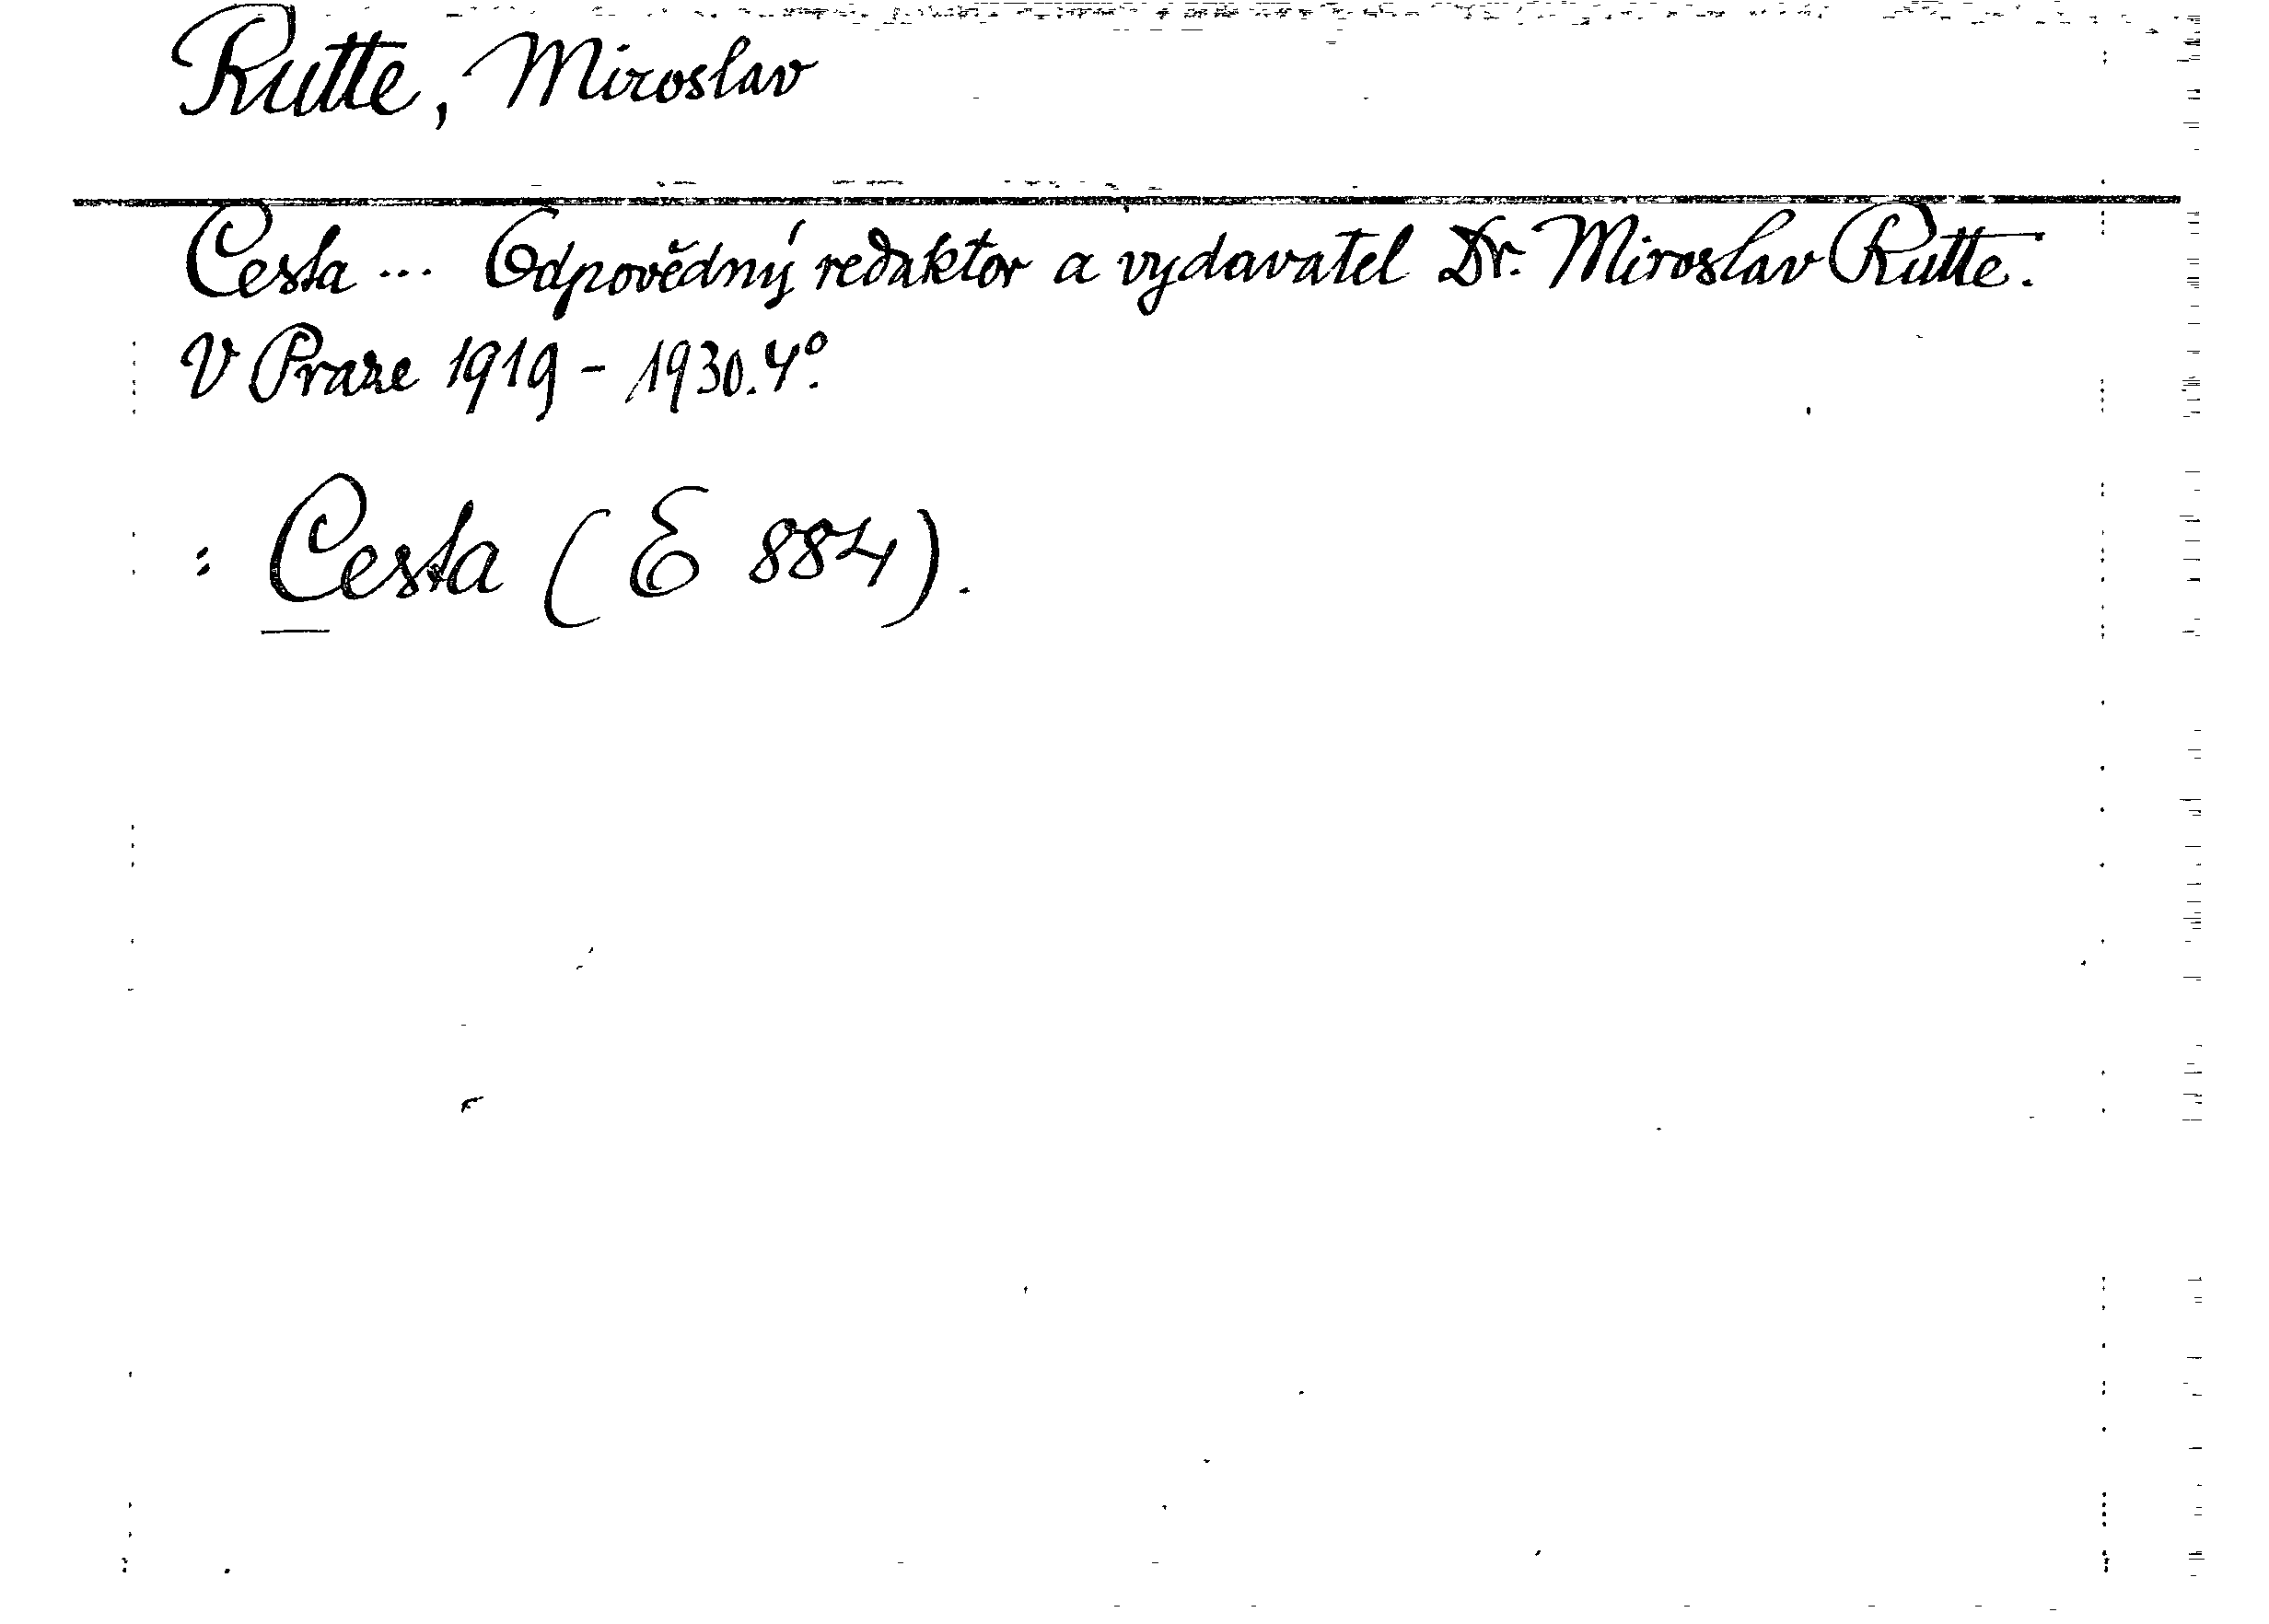 Rutte, Miroslav
Cesta ... Odpovědný redaktor a vydavatel Dr. Miroslav Rutte.
V Praze 1919 - 1930. 4°.
: Cesta (E 884).